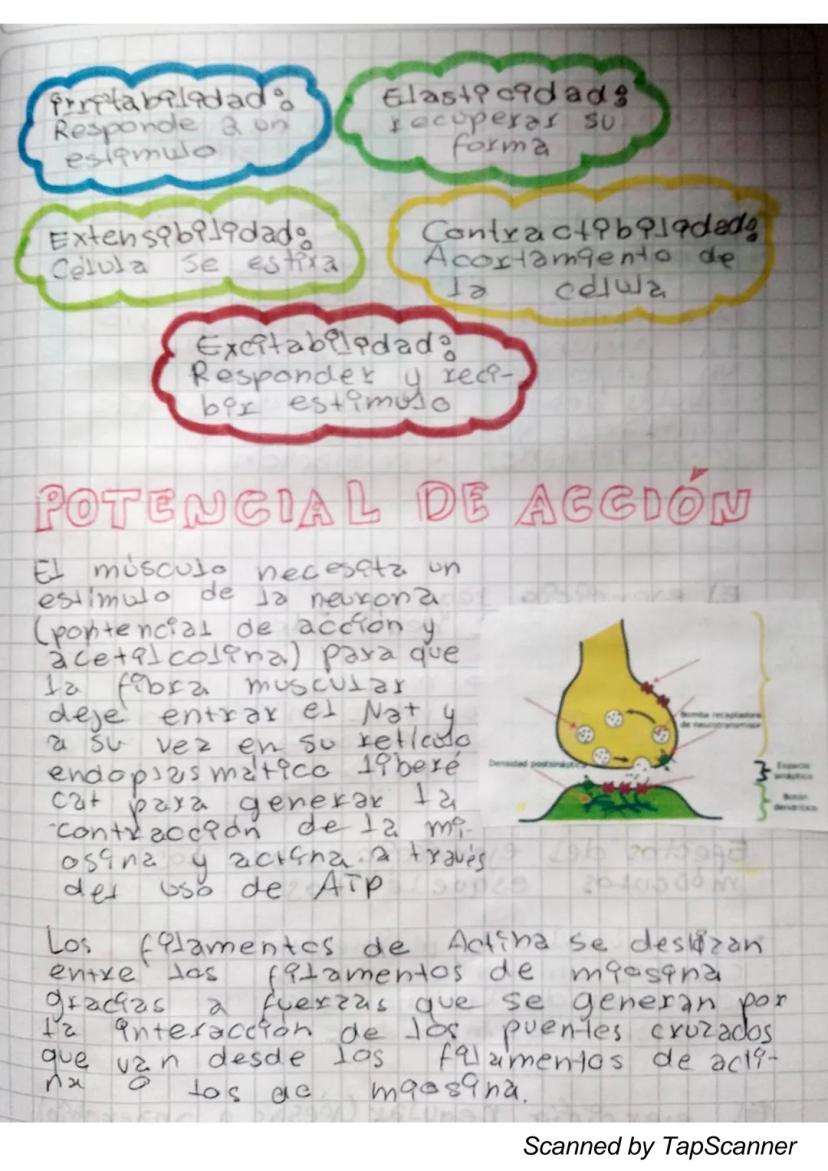 irritabilidad:
Responde a un
estimulo
Elasticidad:
recuperar su
forma
Extensibilidad:
Célula se estira
Contractibilidad:
Acortamiento de
la célula
Excitabilidad:
Responder y reci-
bir estimulo
POTENCIAL DE ACCIÓN
El músculo necesita un
estímulo de la neurona
(pontencial de acción y
acetilcolina) para que
la fibra muscular
deje entrar el Na+ y
a su vez en su retículo
endoplasmático liberé
Ca+ para generar la
contracción de la mi-
osina y actina a través
del uso de ATP
Bomba recaptadora
de neurotransmisor
Densidad postsináptica
Espacio
sináptico
Botón
dendrítico
Los filamentos de Actina se deslizan
entre los filamentos de miosina
gracias a fuerzas que se generan por
la interacción de los puentes cruzados
que van desde los filamentos de acti-
na a los de miosina.
Scanned by TapScanner